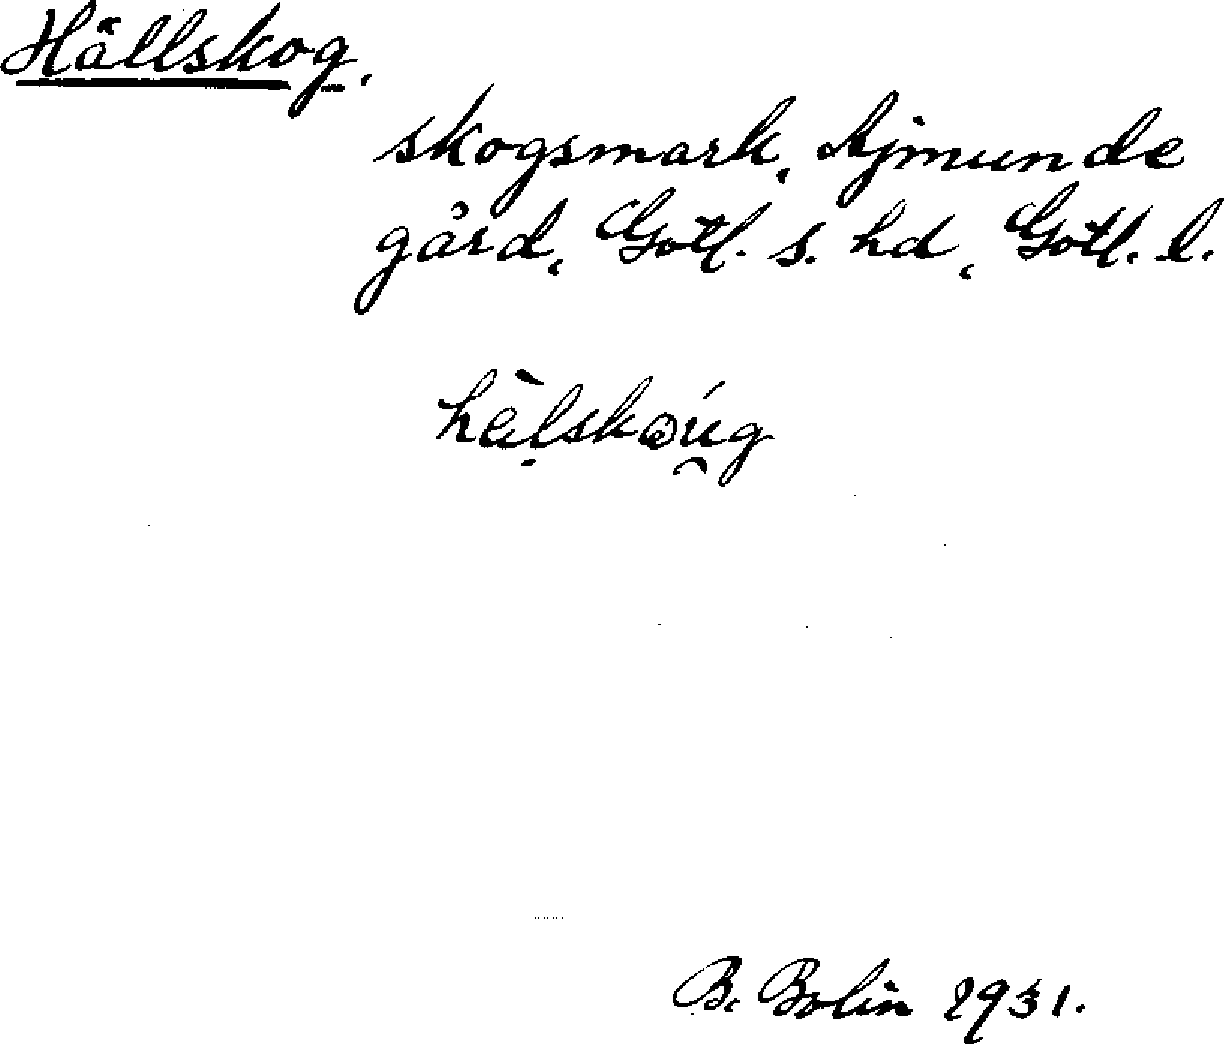 Hällskog.
skogsmark, Ajmunde
gård, Gotl. s. hd, Gotl. l.
hèlskǝúg
B. Bolin 1931.